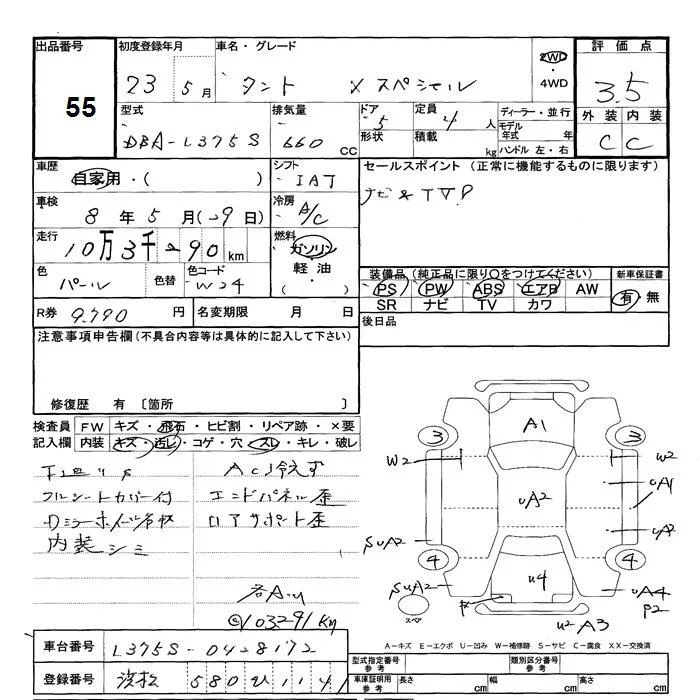 出品番号 初度登録年月 車名・グレード 評価点
55 23 5月 タント Xスペシャル 2WD・4WD 3.5
型式 排気量 ドア 定員 ディーラー・並行 外装 内装
DBA-L375S 660 CC 5 4人 モデル年式 年 C C
形状 積載 kg ハンドル 左・右
車歴 自家用・( ) シフト IAT セールスポイント (正常に機能するものに限ります)
車検 8年5月( 9日) 冷房 A/C ナビ&TV
走行 10万3千 90km 燃料 ガソリン・軽油・( )
色 パール 色替 色コード W24 装備品 (純正品に限り○をつけてください) 新車保証書
PS PW ABS エアB AW 有・無
SR ナビ TV カワ
R券 9.790円 名変期限 月 日 後日品
注意事項申告欄 (不具合内容等は具体的に記入して下さい)
修復歴 有 〔箇所 〕
検査員 FW キズ・飛石・ヒビ割・リペア跡・×要
記入欄 内装 キズ・汚レ・コゲ・穴・スレ・キレ・破レ
AC冷えず
フルシートカバー付 エンドパネル歪
ロアサポート歪
内装シミ
103291Km
車台番号 L375S-0428172
登録番号 浜松 580 ひ 1141
A1
3 3
W2 W2
UA1
UA2
UA2
SUA2
4 4
SUA2 U4 UA4
P P2
スペア
U2 A3
A-キズ E-エクボ U-凹み W-補修跡 S-サビ C-腐食 XX-交換済
型式指定番号 参考 類別区分番号 参考
車庫証明用 参考 長さ cm 幅 cm 高さ cm